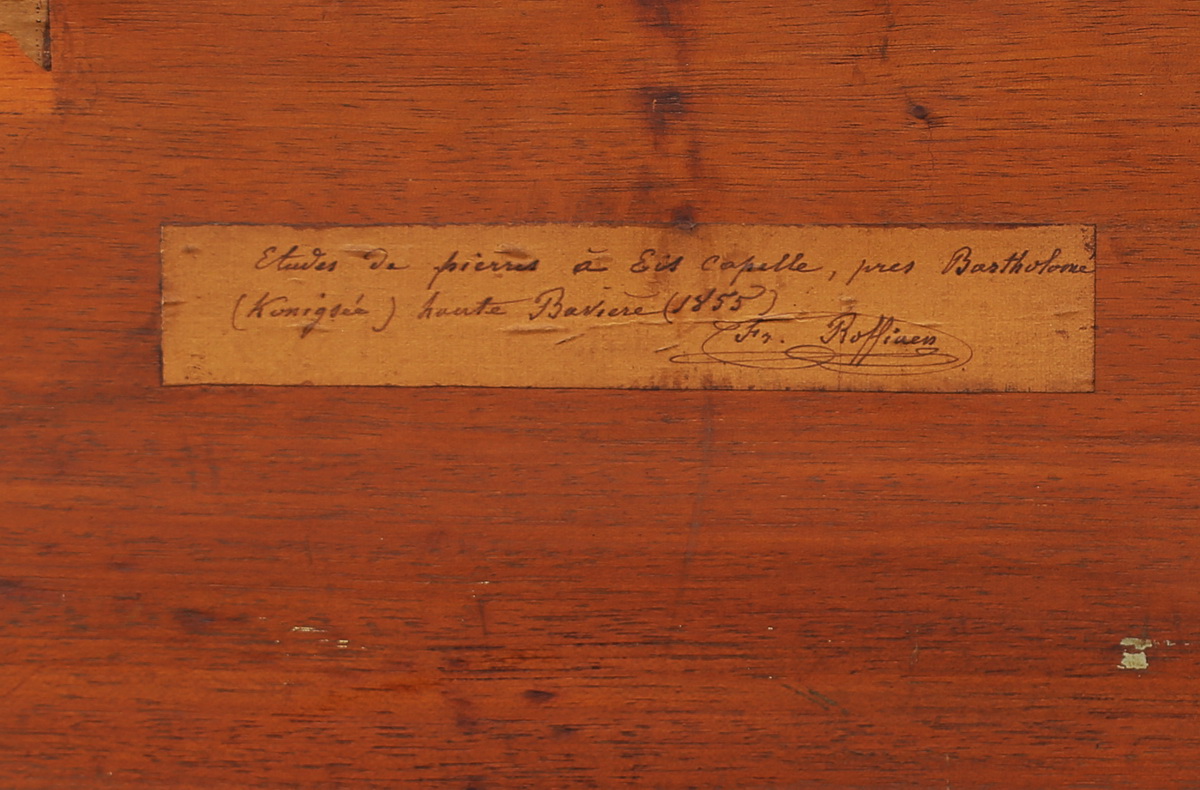 Etudes de pierres à Eis capelle, pres Bartholomé
(Konigsée) haute Baviere (1855)
Fr. Roffiaen